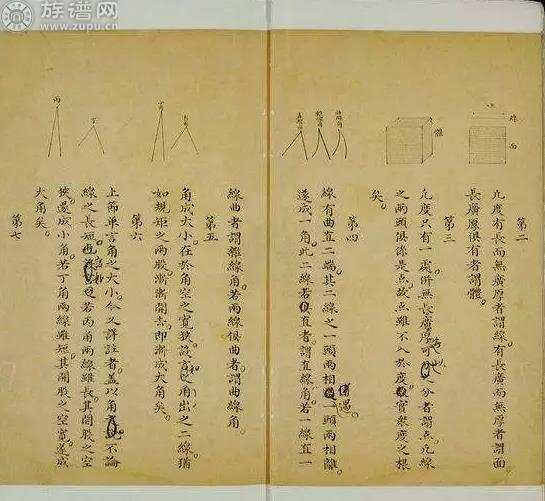 族谱网
www.zupu.cn
線
面
體
雜線角
直線角
丁
丙
第二
凢度有長而無廣厚者謂線有長廣而無厚者謂面
長廣厚俱有者謂體
第三
凢度只有一處併無長廣厚可以之分者謂点凢線
之兩頭俱係是点故点雖不入於度實衆度之根
矣
第四
線有曲直二端其二線之一頭兩相遇一頭兩相離
遂成一角此二線若俱直者謂直線角若一線直一
線曲者謂雜線角若兩線俱曲者謂曲線角
第五
角成大小在於角空之寛狹故言角出之二線猶
如規矩之兩股漸漸開去即漸成大角矣
第六
上節単言角之大小今又詳註者盖以角不論
線之長短若丙角兩線雖長其開股之空
狹遂成小角若丁角兩線雖短其開股之空寛遂成
大角矣
第七